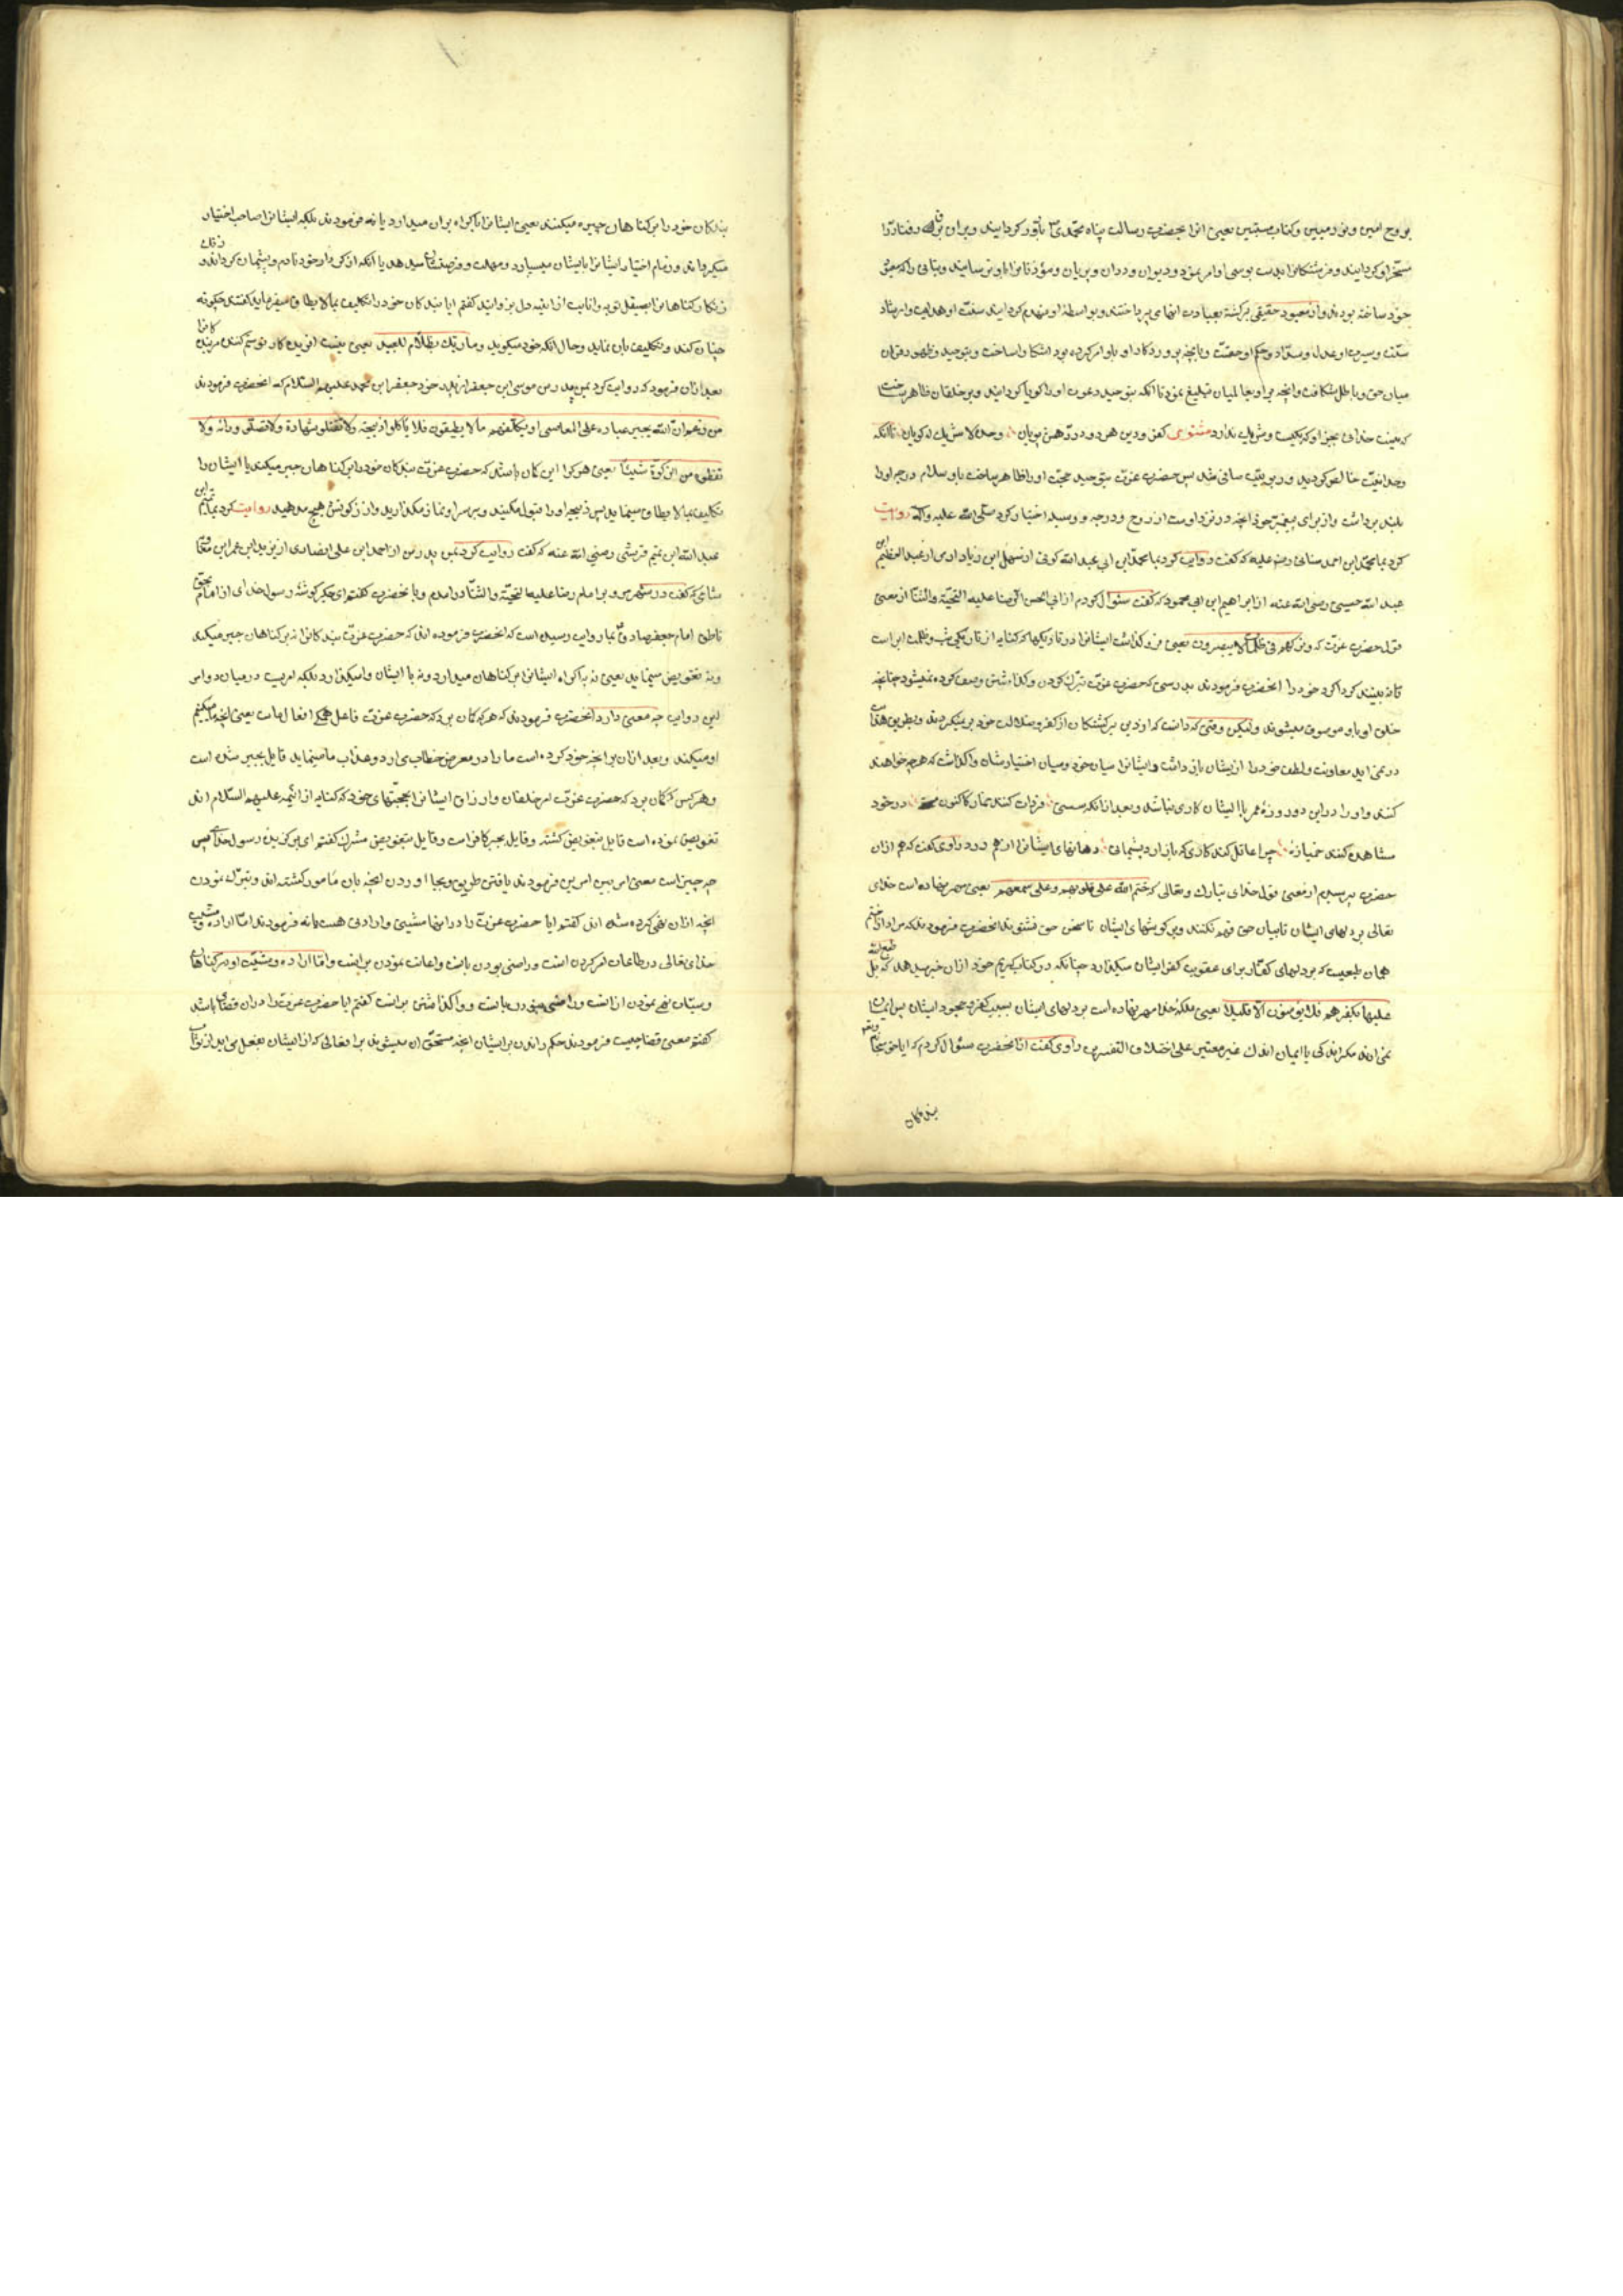 بروح امین و نور مبین و کتاب مستبین یعنی انرا بحضرت رسالت پناه محمدی نازل کردانیدند و بران براق رفتار را
مسخر او کردانید و فرشتکانرا بپای بوسی او امر نمود و دیوان و ددان و پریان و
خود ساخته بودند و از معبود حقیقی برکشته بعبادت انهای پرداختند و بواسطۀ او منهدم کردانید سنت او هدایت و ارشاد
سنت و سیرت او عدل و سداد و حکم او حقست و بانچه پروردکار او باو امر کرده بود اشکارا ساخت و بتوحید و ظهور فرقان
میان حق و باطل شکافت و انچه بر او بعالمیان تبلیغ نمود تا انکه بتوحید دعوت او را کویا کردانید و بر خلقان ظاهر ساخت
که نیست خدائی بجز او که یکیست و شریک ندارد مثنوی کفر و دین هر دو در رهش پویان وحده لا شریک له کویان تا انکه
وحدانیت خالص کردید و ربوبیت صافی شد پس حضرت عزت بتوحید حجت او را ظاهر ساخت باو سلام درجه او را
بلند برداشت و از برای پیغمبر خود انچه در نزد اوست از روح و درجه و وسیله اختیار کرد صلی الله علیه و اله روایت
کرد بما محمد ابن احمد سنانی رضی علیه که کفت روایت کرد بما محمد ابن ابی عبد الله کوفی از سهل ابن زیاد ادمی از عبد العظیم ابن
عبد الله حسینی رضی الله عنه از ابراهیم ابن ابی محمود که کفت سئوال کردم از ابی الحسن الرضا علیه التحیة والثنا از معنی
قول حضرت عزت که وترکهم فی ظلمات لا یبصرون یعنی فرو کذاشت ایشانرا در تاریکیها که کنایه از تاریکی شب و ظلمت ابر است
تا نه بینند کرداکرد خود را انحضرت فرمودند بدرستی که حضرت عزت بترک کردن و کذاشتن وصف کرده نمیشود چنانچه
خلق او باو موصوف میشوند ولیکن وقتی که دانست که او دین برکشتکان از کفر و ضلالت خود بر نمیکردند و بطریق هدایت
در نمی ایند معاونت و لطف خود را از ایشان باز داشت و ایشانرا میان خود و میان اختیارشان واکذاشت که هرچه خواهند
کنند و او را در این دو روزۀ عمر با ایشان کاری نباشد و بعد از انکه در خود
مشاهده کنند خمیازه چرا عاقل کند کاری که باز ارد پشیمانی دهانهای ایشانرا از هم درد راوی کفت که هم ازان
حضرت پرسیدم از معنی قول خدای تبارک و تعالی که ختم الله علی قلوبهم و علی سمعهم یعنی مهر نهاده است خدای
تعالی بر دلهای ایشان تا بیان حق فهم نکنند و بر کوشهای ایشان تا سخن حق نشنوند انحضرت فرمودند که مراد از ختم
همان طبعیست که بر دلهای کفّار برای عقوبت کفر ایشان میکذارد چنانکه در کتاب کریم خود ازان خبر میدهد که بل طبع الله
علیها بکفرهم فلا یؤمنون الا قلیلا یعنی بلکه خدا مهر نهاده است بر دلهای ایشان بسبب کفر و جحود ایشان پس ایمان
نمی اورند مکر اندکی یا ایمان اندک غیر معتبر علی اختلاف التفسیرین راوی کفت از انحضرت سئوال کردم که ایا حق سبحانه و تعالی
بندکان
بندکان خود را بر کناهان جبر میکند یعنی ایشانرا باکراه بران میدارد یا نه فرمودند بلکه ایشانرا صاحب اختیار
میکرداند و زمام اختیار ایشانرا بایشان میسپارد و مهلت و فرصت شان میدهد یا انکه از کردار خود نادم و پشیمان کردند و زنک
زنکار کناهانرا بصیقل توبه و انابت از اینه دل بزدایند کفتم ایا بندکان خود را تکلیف بما لا یطاق میفرماید کفتند چکونه
چنان کند و تکلیف بان نماید و حال انکه خود میکوید و ما ربک بظلام للعبید یعنی نیست افریدکار تو ستم کننده مر بندکانرا
بعد ازان فرمود که روایت کرد بمن پدر من موسی ابن جعفر از پدر خود جعفر ابن محمد علیهم السلام که انحضرت فرمودند
من زعم ان الله یجبر عباده علی المعاصی او یکلفهم ما لا یطیقون فلا تاکلوا ذبیحته ولا تقبلوا شهادة ولا تصلّو ورائه ولا
تعطوه من الزکوة شیئا یعنی هرکرا این کمان باشد که حضرت عزت بندکان خود را بر کناهان جبر میکند یا ایشانرا
تکلیف بما لا یطاق مینماید پس ذبیحه او را قبول مکنید و بر سر او نماز مکذارید و از زکوتش هیچ مدهید روایت کرد بما تمیم ابن
عبد الله ابن تمیم قریشی رضی الله عنه که کفت روایت کرد بمن پدر من از احمد ابن علی انصاری از یزید ابن عمر ابن معاویه
شامی که کفت در شهر مرو بر امام رضا علیه التحیة والثنا درامدم و با نحضرت کفتم ای جکرکوشۀ رسول خدای از امام بحق
ناطق امام جعفر صادق بما روایت رسیده است که انحضرت فرموده اند که حضرت عزت بندکانرا نه بر کناهان جبر میکند
و نه تفویض مینماید یعنی نه باکراه ایشانرا بر کناهان میدارد و نه با ایشان وا میکذارد بلکه امریست در میان دو امر
این روایت چه معنی دارد انحضرت فرمودند که هرکه کمان برد که حضرت عزت فاعل همکی افعال ماست یعنی انچه ما میکنیم
او میکند و بعد ازان بر انچه خود کرده است ما را در معرض خطاب می ارد و عذاب ما مینماید قایل بجبر شده است
و هر کس که کمان برد که حضرت عزت امر خلقان و ارزاق ایشانرا بحجتهای خود که کنایه از ائمه علیهم السلام اند
تفویض نموده است قایل بتفویض کشته و قایل بجبر کافر است و قایل بتفویض مشرک کفتم ای برکزیده رسول خدای پس
چه چیز است معنی امر بین امرین فرمودند یافتن طریق و بجا اوردن انچه بان مامور کشته اند و بترک نمودن
انچه ازان نهی کرده شده اند کفتم ایا حضرت عزت را در اینها مشیتی و ارادتی هست یا نه فرمودند اما اراده و مشیت
خدای تعالی در طاعات امر کردن است و راضی بودن بانست و اعانت نمودن بر انست و اما اراده و مشیت او در کناهان
نهی نمودن از انست و راضی نبودن بانست و واکذاشتن بر انست کفتم ایا حضرت عزت را دران قضائی باشد
کفتم معنی قضا چیست فرمودند حکم راندن بر ایشان انچه مستحق ان میشوند بر افعالی که از ایشان بفعل می اید از ثواب